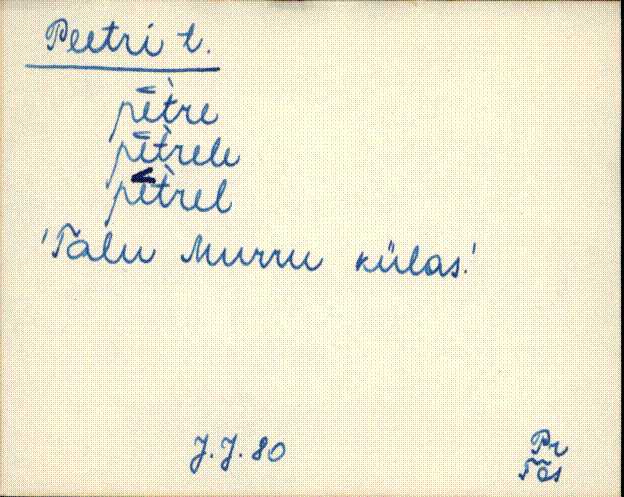 Peetri t.
pētre
pētrele
pētrel
'Talu Murru külas.'
J.J. 80
Pr
Tõs